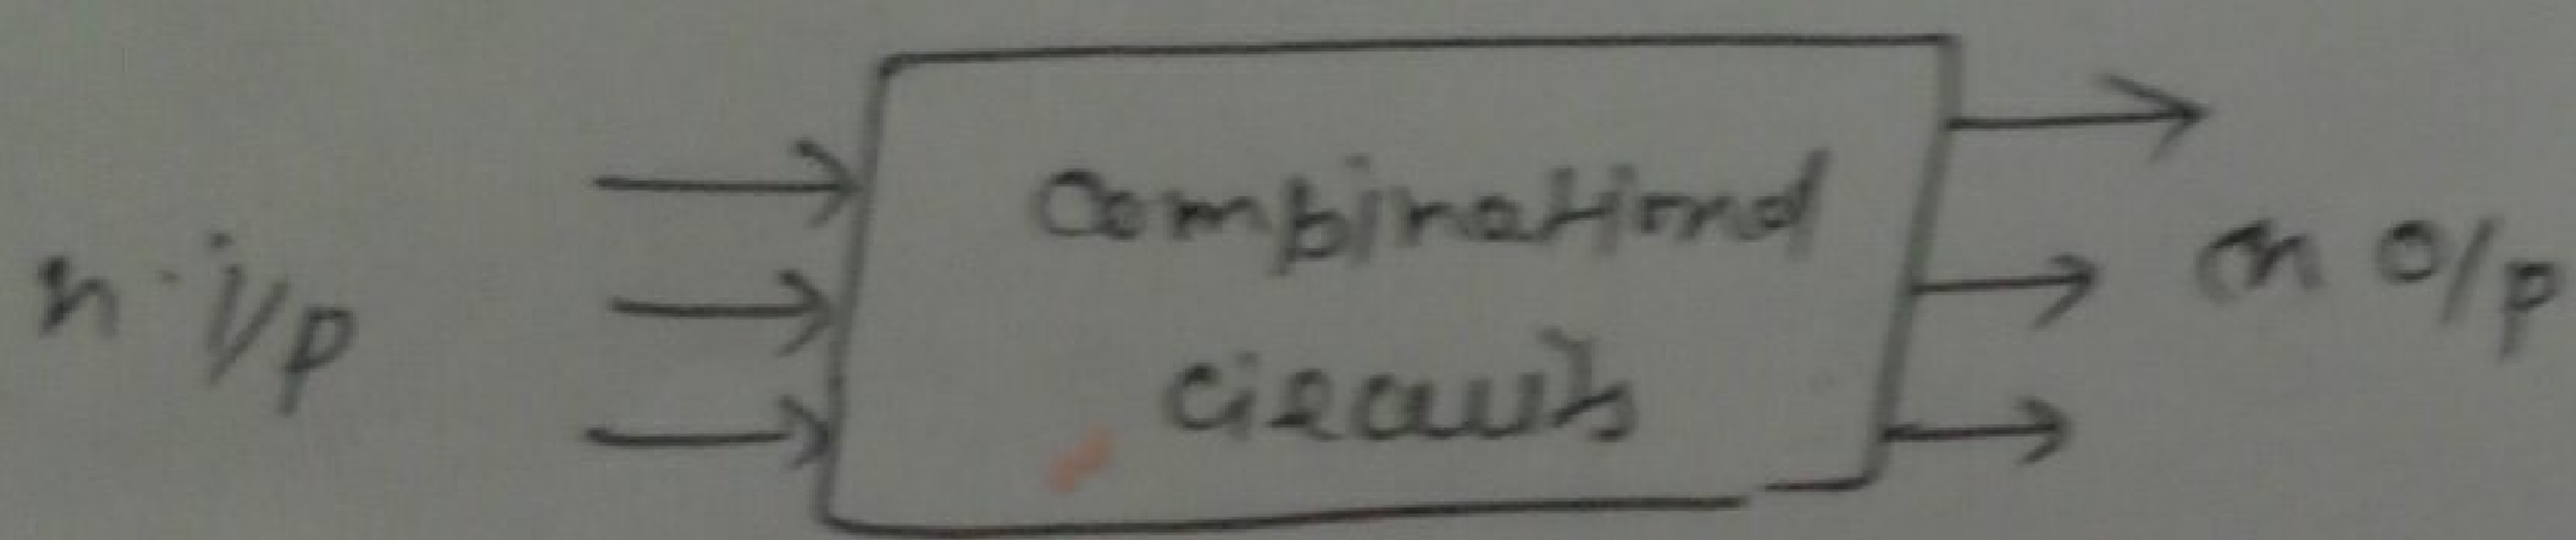 n i/p
Combinational
circuits
m o/p